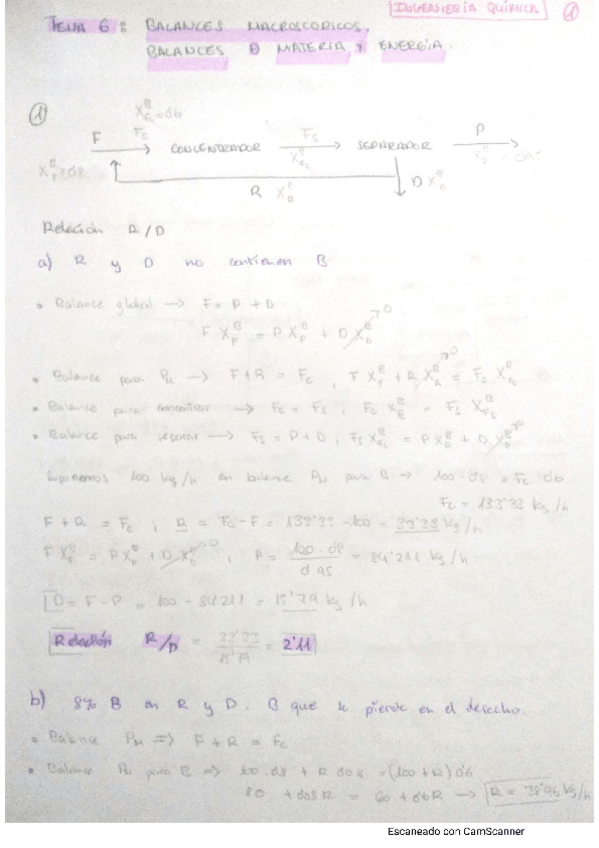 INGENIERÍA QUÍMICA 1
TEMA 6: BALANCES MACROSCOPICOS,
BALANCES D MATERIA Y ENERGÍA.
1
F
CONCENTRADOR
SEPARADOR
P
R
D
Relación R/D
a) R y D no contienen B
• Balance global → F = P + D
F X_F^B = P X_P^B + D X_D^B → 0
• Balance para PM → F + R = Fc , F X_F^B + R X_R^B → 0 = Fc X_Fc^B
• Balance para → Fc = Fs ;
• Balance para separar → Fs = P + D ;
Suponemos 100 kg/h en balance PM para B → 100 · 0'8 = Fc · 0'6
Fc = 133'33 kg/h
F + R = Fc ; R = Fc - F = 133'33 - 100 = 33'33 kg/h
F X_F^B = P X_P^B + D X_D^B → 0 , P = 100 · 0'8 / 0'95 = 84'211 kg/h
D = F - P = 100 - 84'211 = 15'79 kg/h
Relación R/D = 33'33 / 15'79 = 2'11
b) 8% B en R y D. B que se pierde en el desecho.
• Balance PM ⇒ F + R = Fc
• Balance PM para B ⇒ R 0'08 = (100 + R) 0'6
80 + 0'08R = 60 + 0'6R → R = 38'46 kg/h
Escaneado con CamScanner